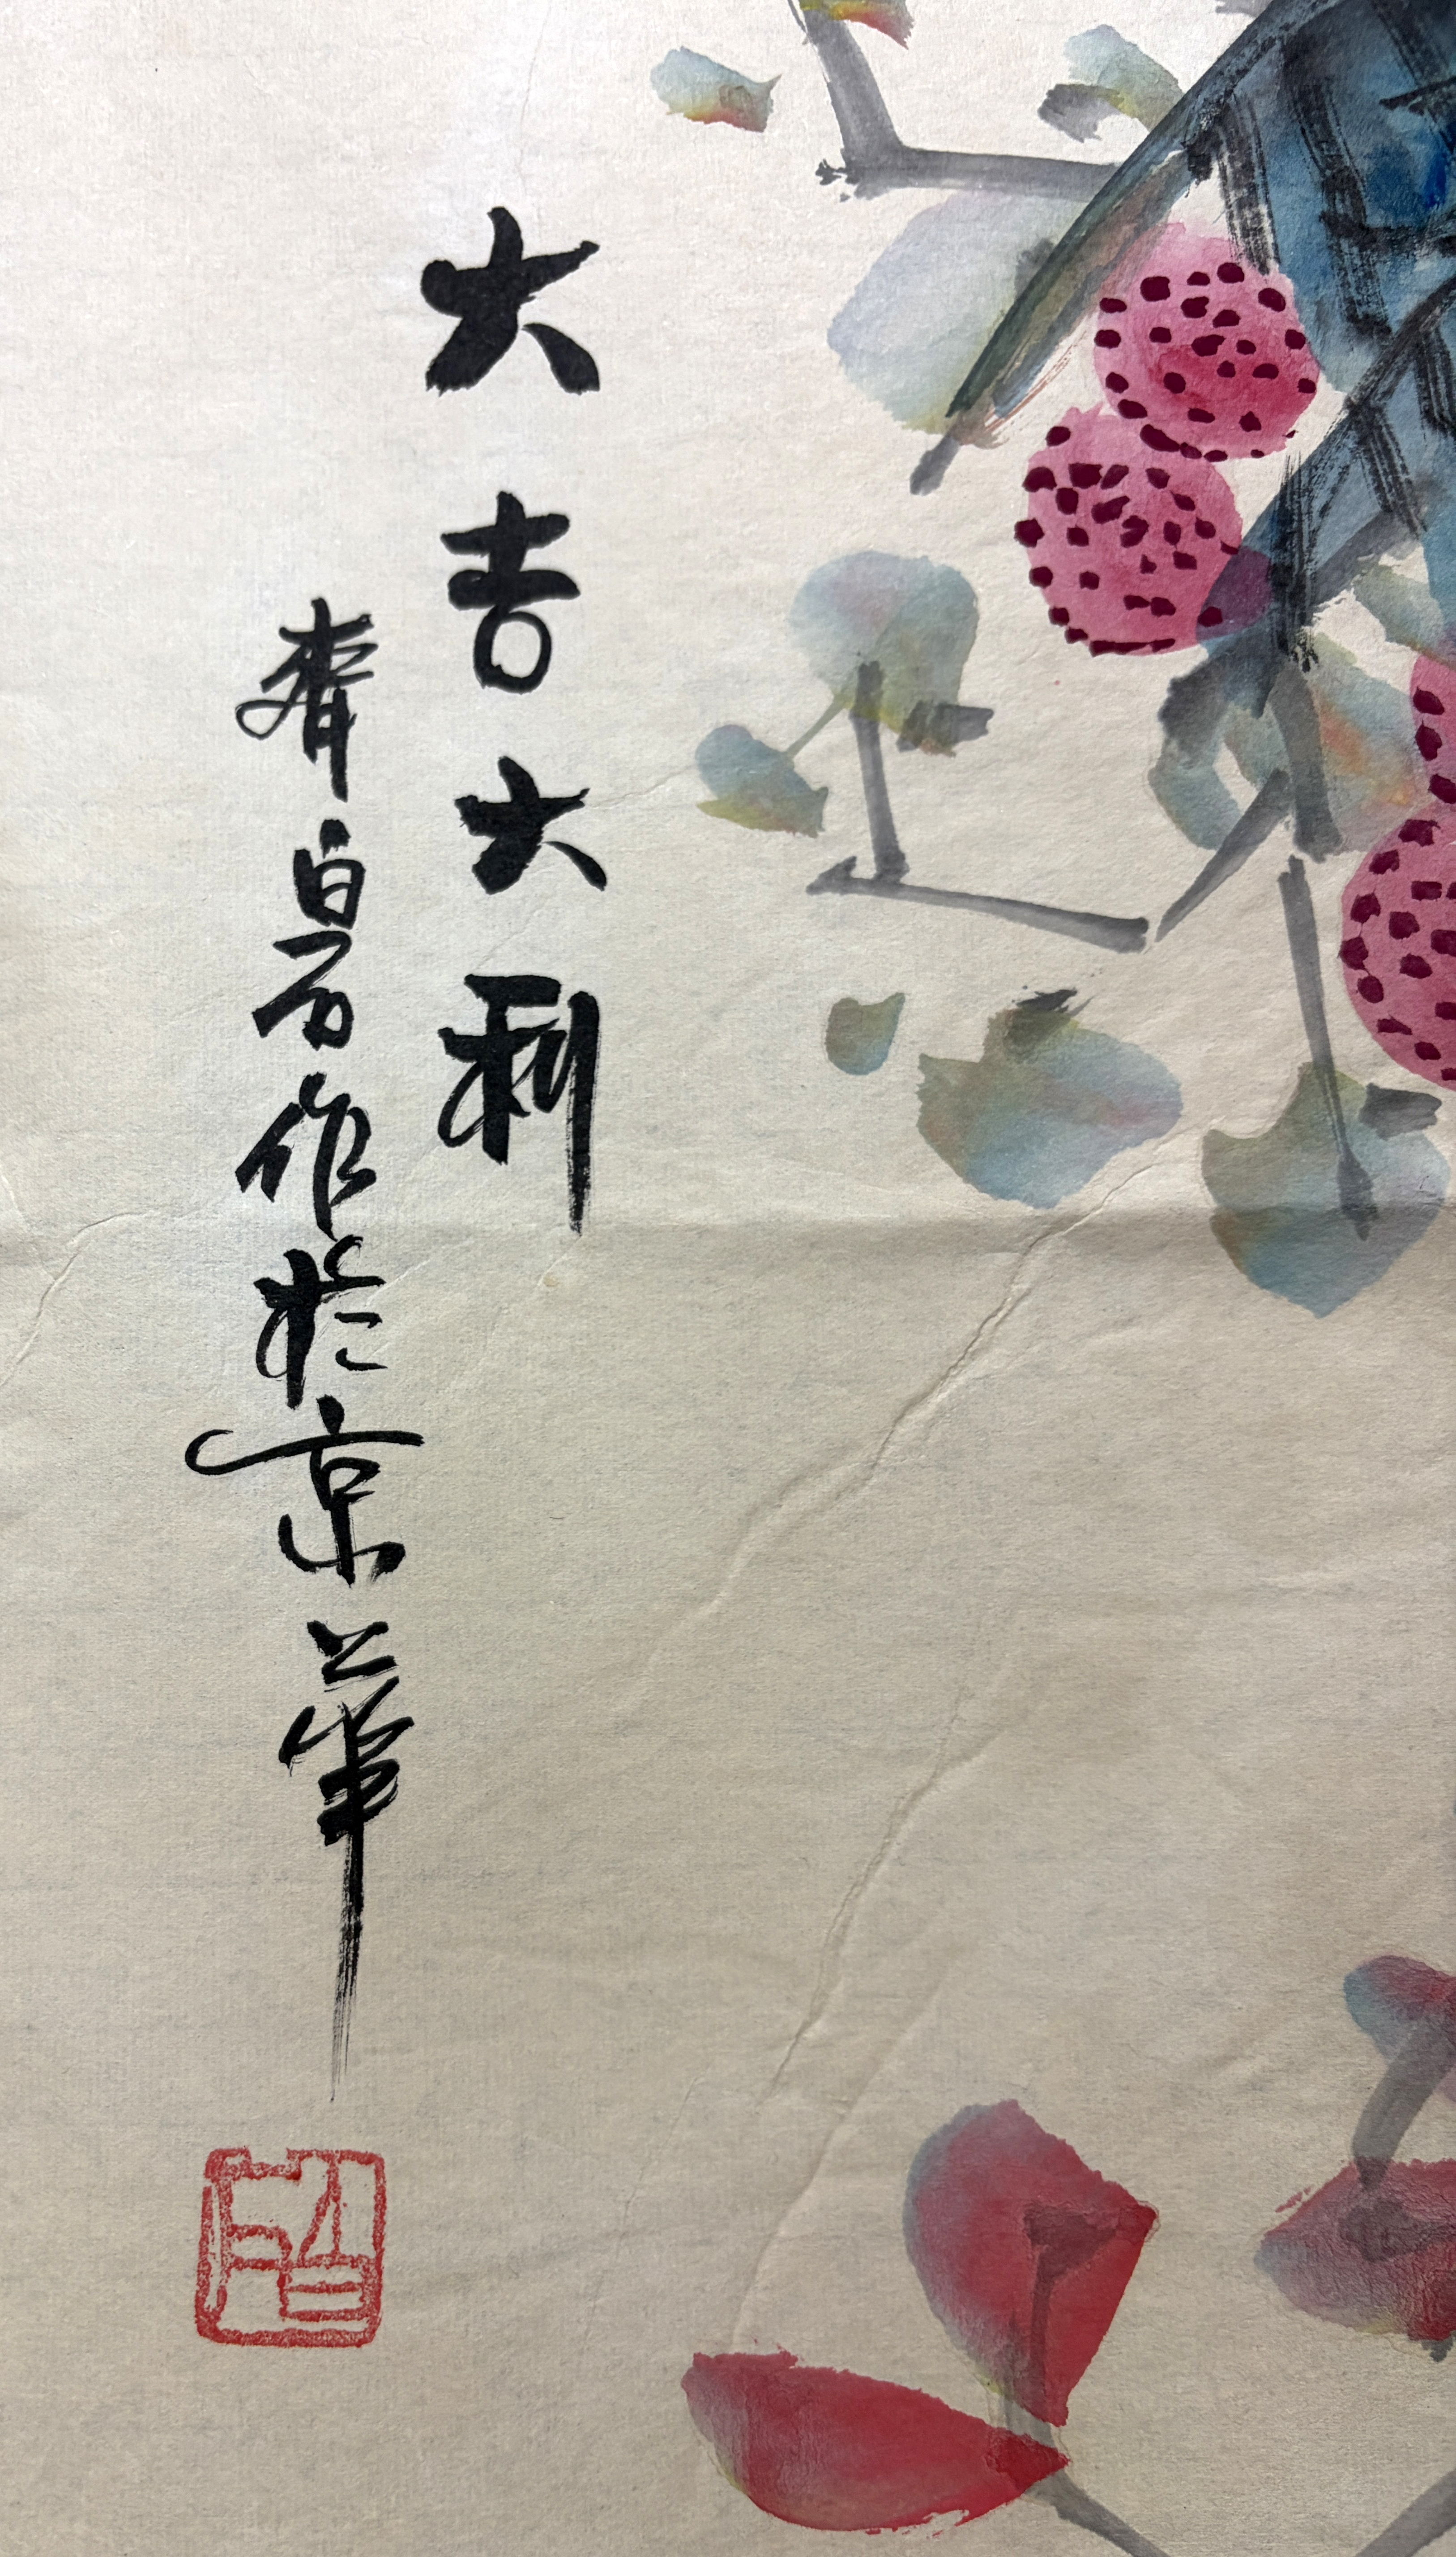 大吉大利
齊白石作於京華